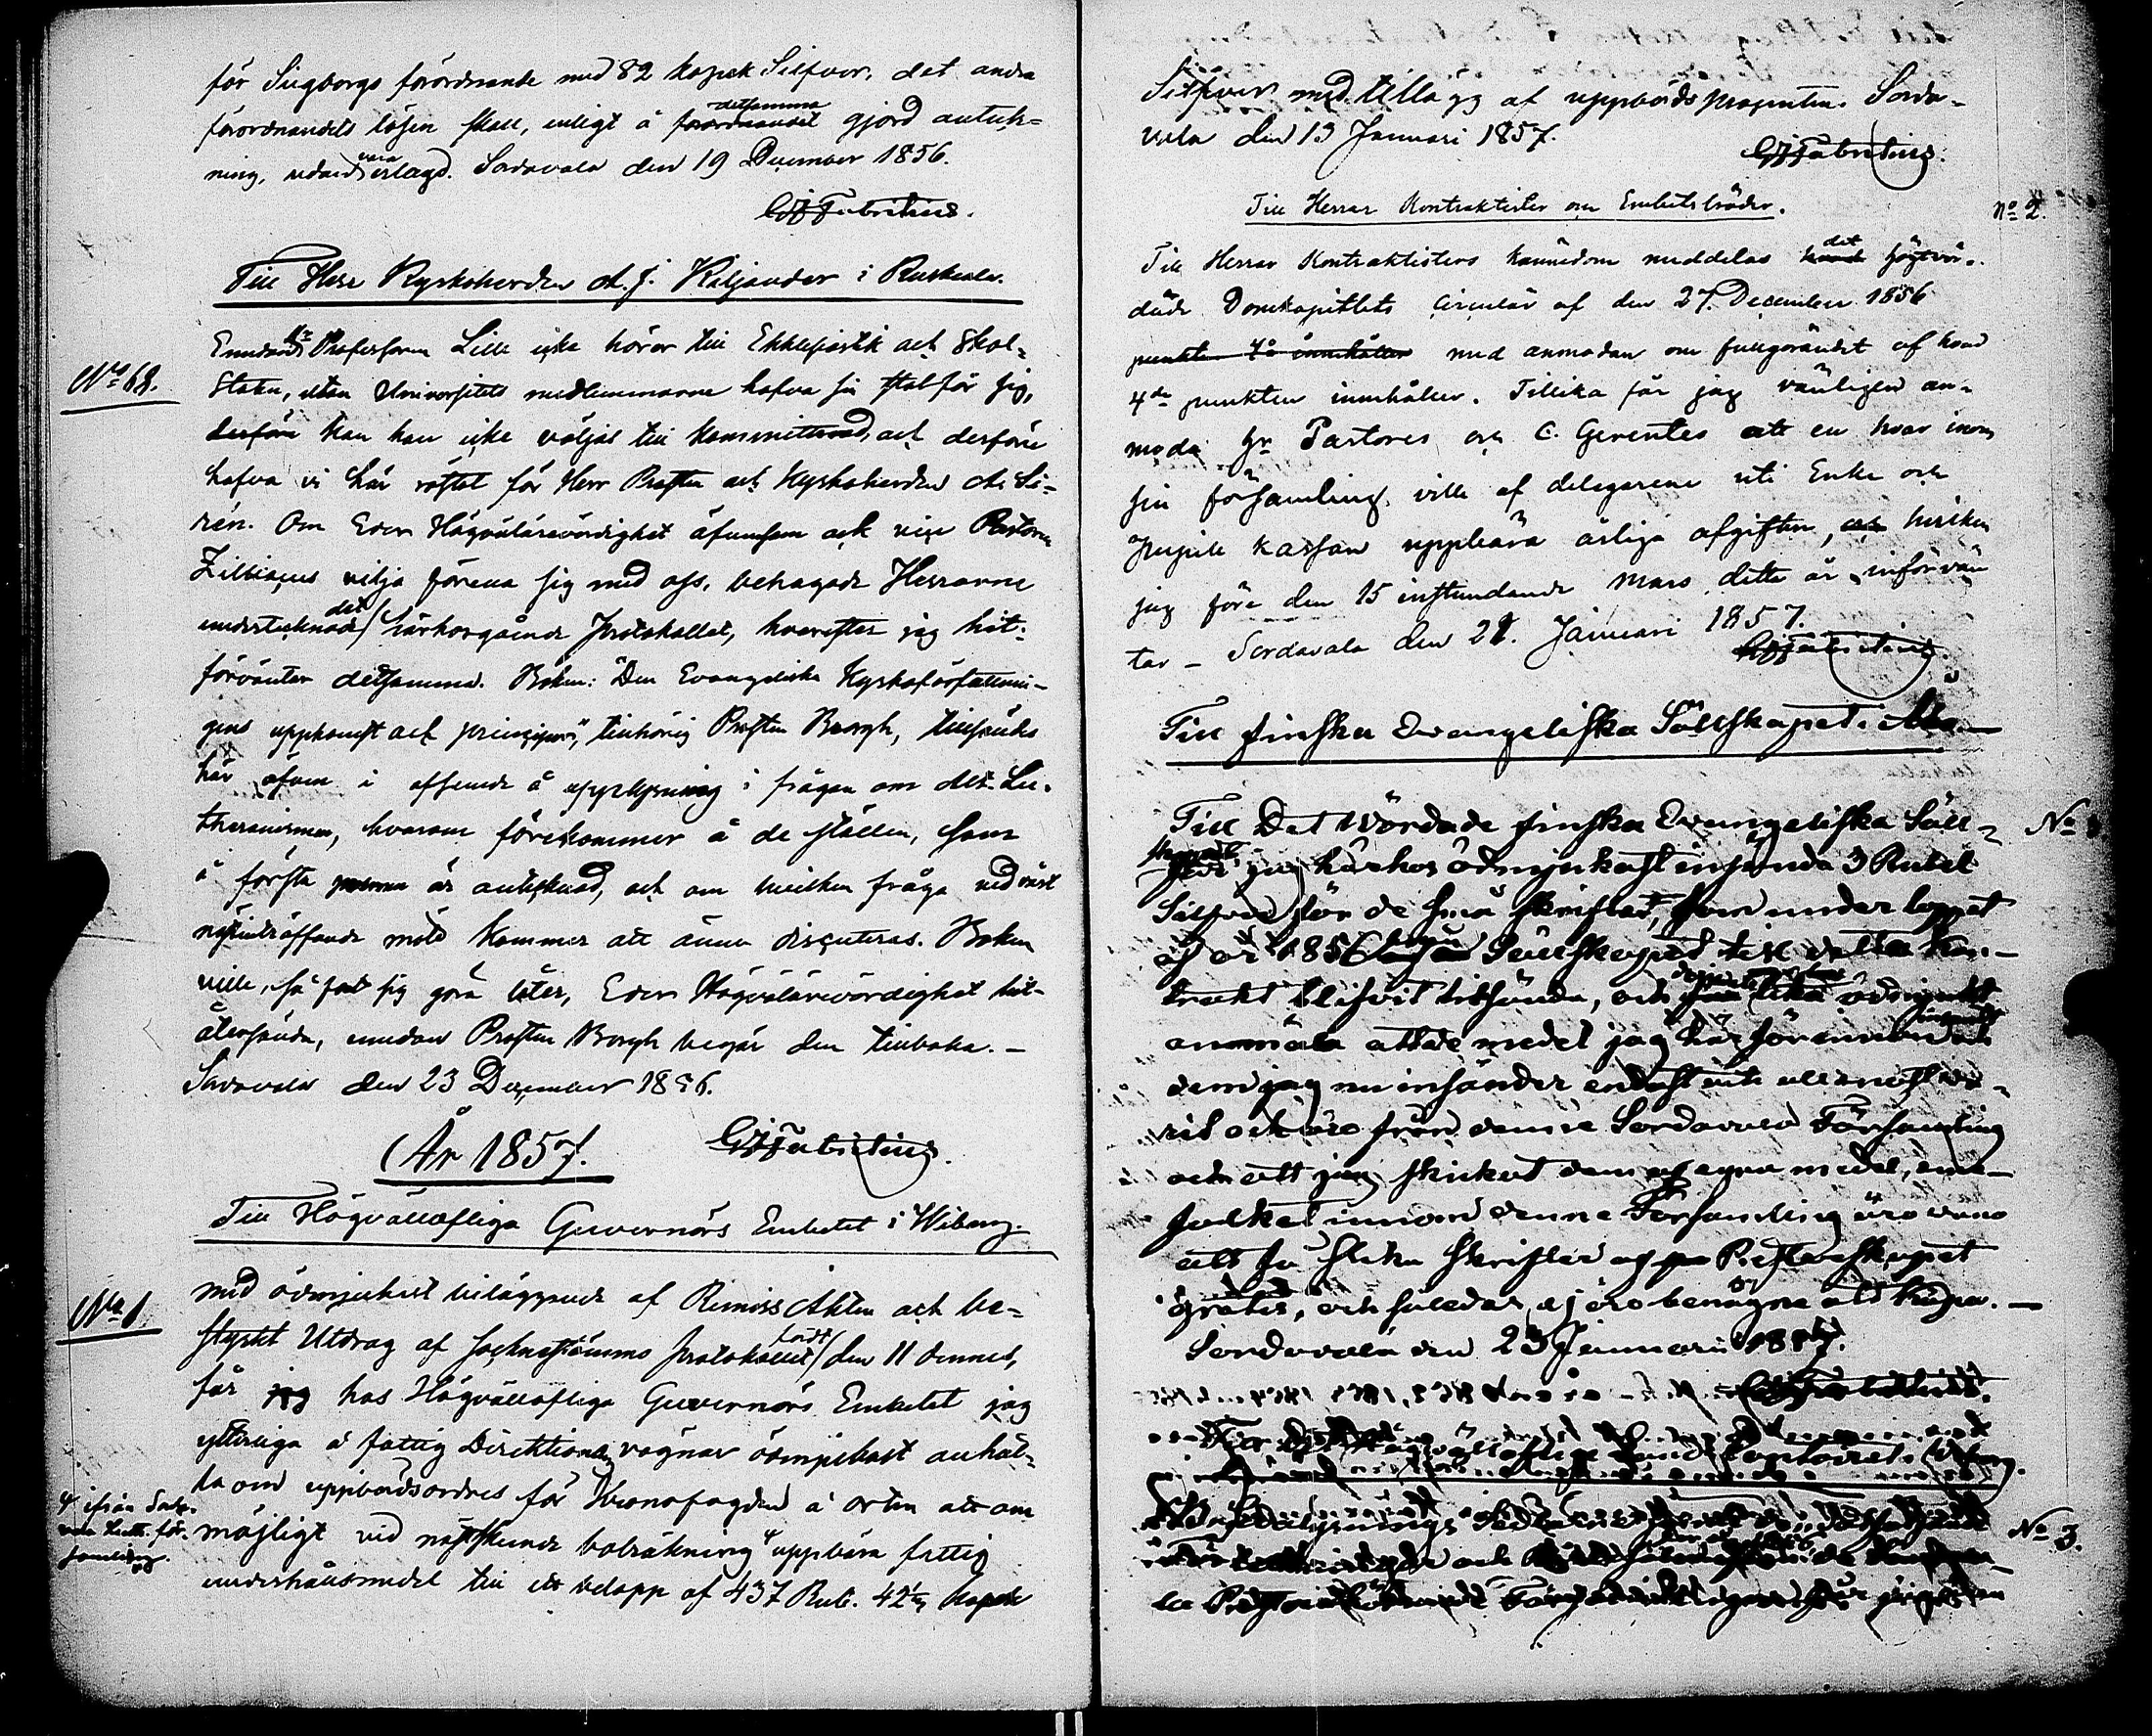 för Sugborgs förordnande med 82 kopek Silfver, det andra
förordnandets lösen skall, enligt å detsamma gjord anteck-
ning, redan vara erlagd. Sordavala den 19 December 1856.
GJFabritius.
Till Herr Kyrkoherden A. J. Kiljander i Ruskeala.
No 68.
Emedan Hr Professorn Lille icke hörer till Ecklesiastik och Skol-
Staten, utan Universitets medlemmarne hafva sin stat för sig,
derföre kan han icke väljas till kommitterad, och derföre
hafva vi här röstat för Herr Prosten och Kyrkoherden A. Si-
rén. Om Eder Högvälärevördighet äfvensom och vice Pastorn
Zilliacus vilja förena sig med oss, behagade Herrarne
underteckna det härhosgående Protokollet, hvarefter jag hit-
förväntar detsamma. Boken: "Den Evangeliska Kyrkoförfattnin-
gens uppkomst och principer", tillhörig Prosten Borgh, tillsändes
här äfven i afseende å upplysning i frågan om det Lu-
theranismen, hvarom förekommer å de ställen, som
å första permen är antecknad, och om hvilken fråga vid vårt
nästinträffande möte kommer att ännu discuteras. Boken
ville, så fort sig göra låter, Eder Högvälärevördighet hit-
återsända, emedan Prosten Borgh begär den tillbaka. –
Sordavala den 23 December 1856.
GJFabritius.
År 1857.
Till Högvällofliga Guvernörs Embetet i Wiborg.
No 1.
Med ödmjukast biläggande af Remiss Akten och be-
styrkt Utdrag af Socknestämmo Protokollet fördt den 11 dennes,
får hos Högvällofliga Guvernörs Embetet jag
ytterliga å fattig Direktionens vägnar ödmjukast anhål-
la om uppbördsordres för Kronofogden å orten att om
möjligt vid nästskeende bolräkning # uppbära fattig
underhållsmedel till ett belopp af 437 Rub. 42½ kopek
# ifrån Sorda-
vala Luth. för-
samling.
Silfver med tillägg af uppbördsprocenten. Sorda-
vala den 13 Januari 1857.
GJFabritius.
Till Herrar Kontraktister och Embetsbröder.
No 2.
Till Herrar Kontraktisters kännedom meddelas det högvör-
dade Domkapitlets Circulär af den 27. December 1856
med anmodan om fullgörandet af hvad
4de punkten innehåller. Tillika får jag vänligen an-
moda Hr Pastores och C. Gerentes att en hvar inom
sin församling, ville af delegarene uti Enke och
Pupill Kassan uppbära årliga afgiften, hvilken
jag före den 15 instundande Mars detta år införvän-
tar – Sordavala den 21. Januari 1857.
GJFabritius.
Till Finska Evangeliska Sällskapet i Åbo
No
Till Det Wördade Finska Evangeliska Säll-
skapet får jag härhos ödmjukast insända 3 Rubel
Silfver för de små skrifter, som under loppet
af år 1856 Sällskapet till detta kon-
trakt blifvit hitsända, och tillika ödmjukt
anmäla att de medel jag här förut insändt och
dem jag nu insänder endast
rit och äro från denne Sordavala Församling
och att jag skickat dem af egna medel, eme-
folket innom denne Församling äro vana
att få slika skrifter af Presterskapet
gratis, och således ej äro benägna att köpa. –
Sordavala den 23 Januari 1857.
GJFabritius.
Till Högvällofliga Lands Contoiret i Wiborg.
No 3.